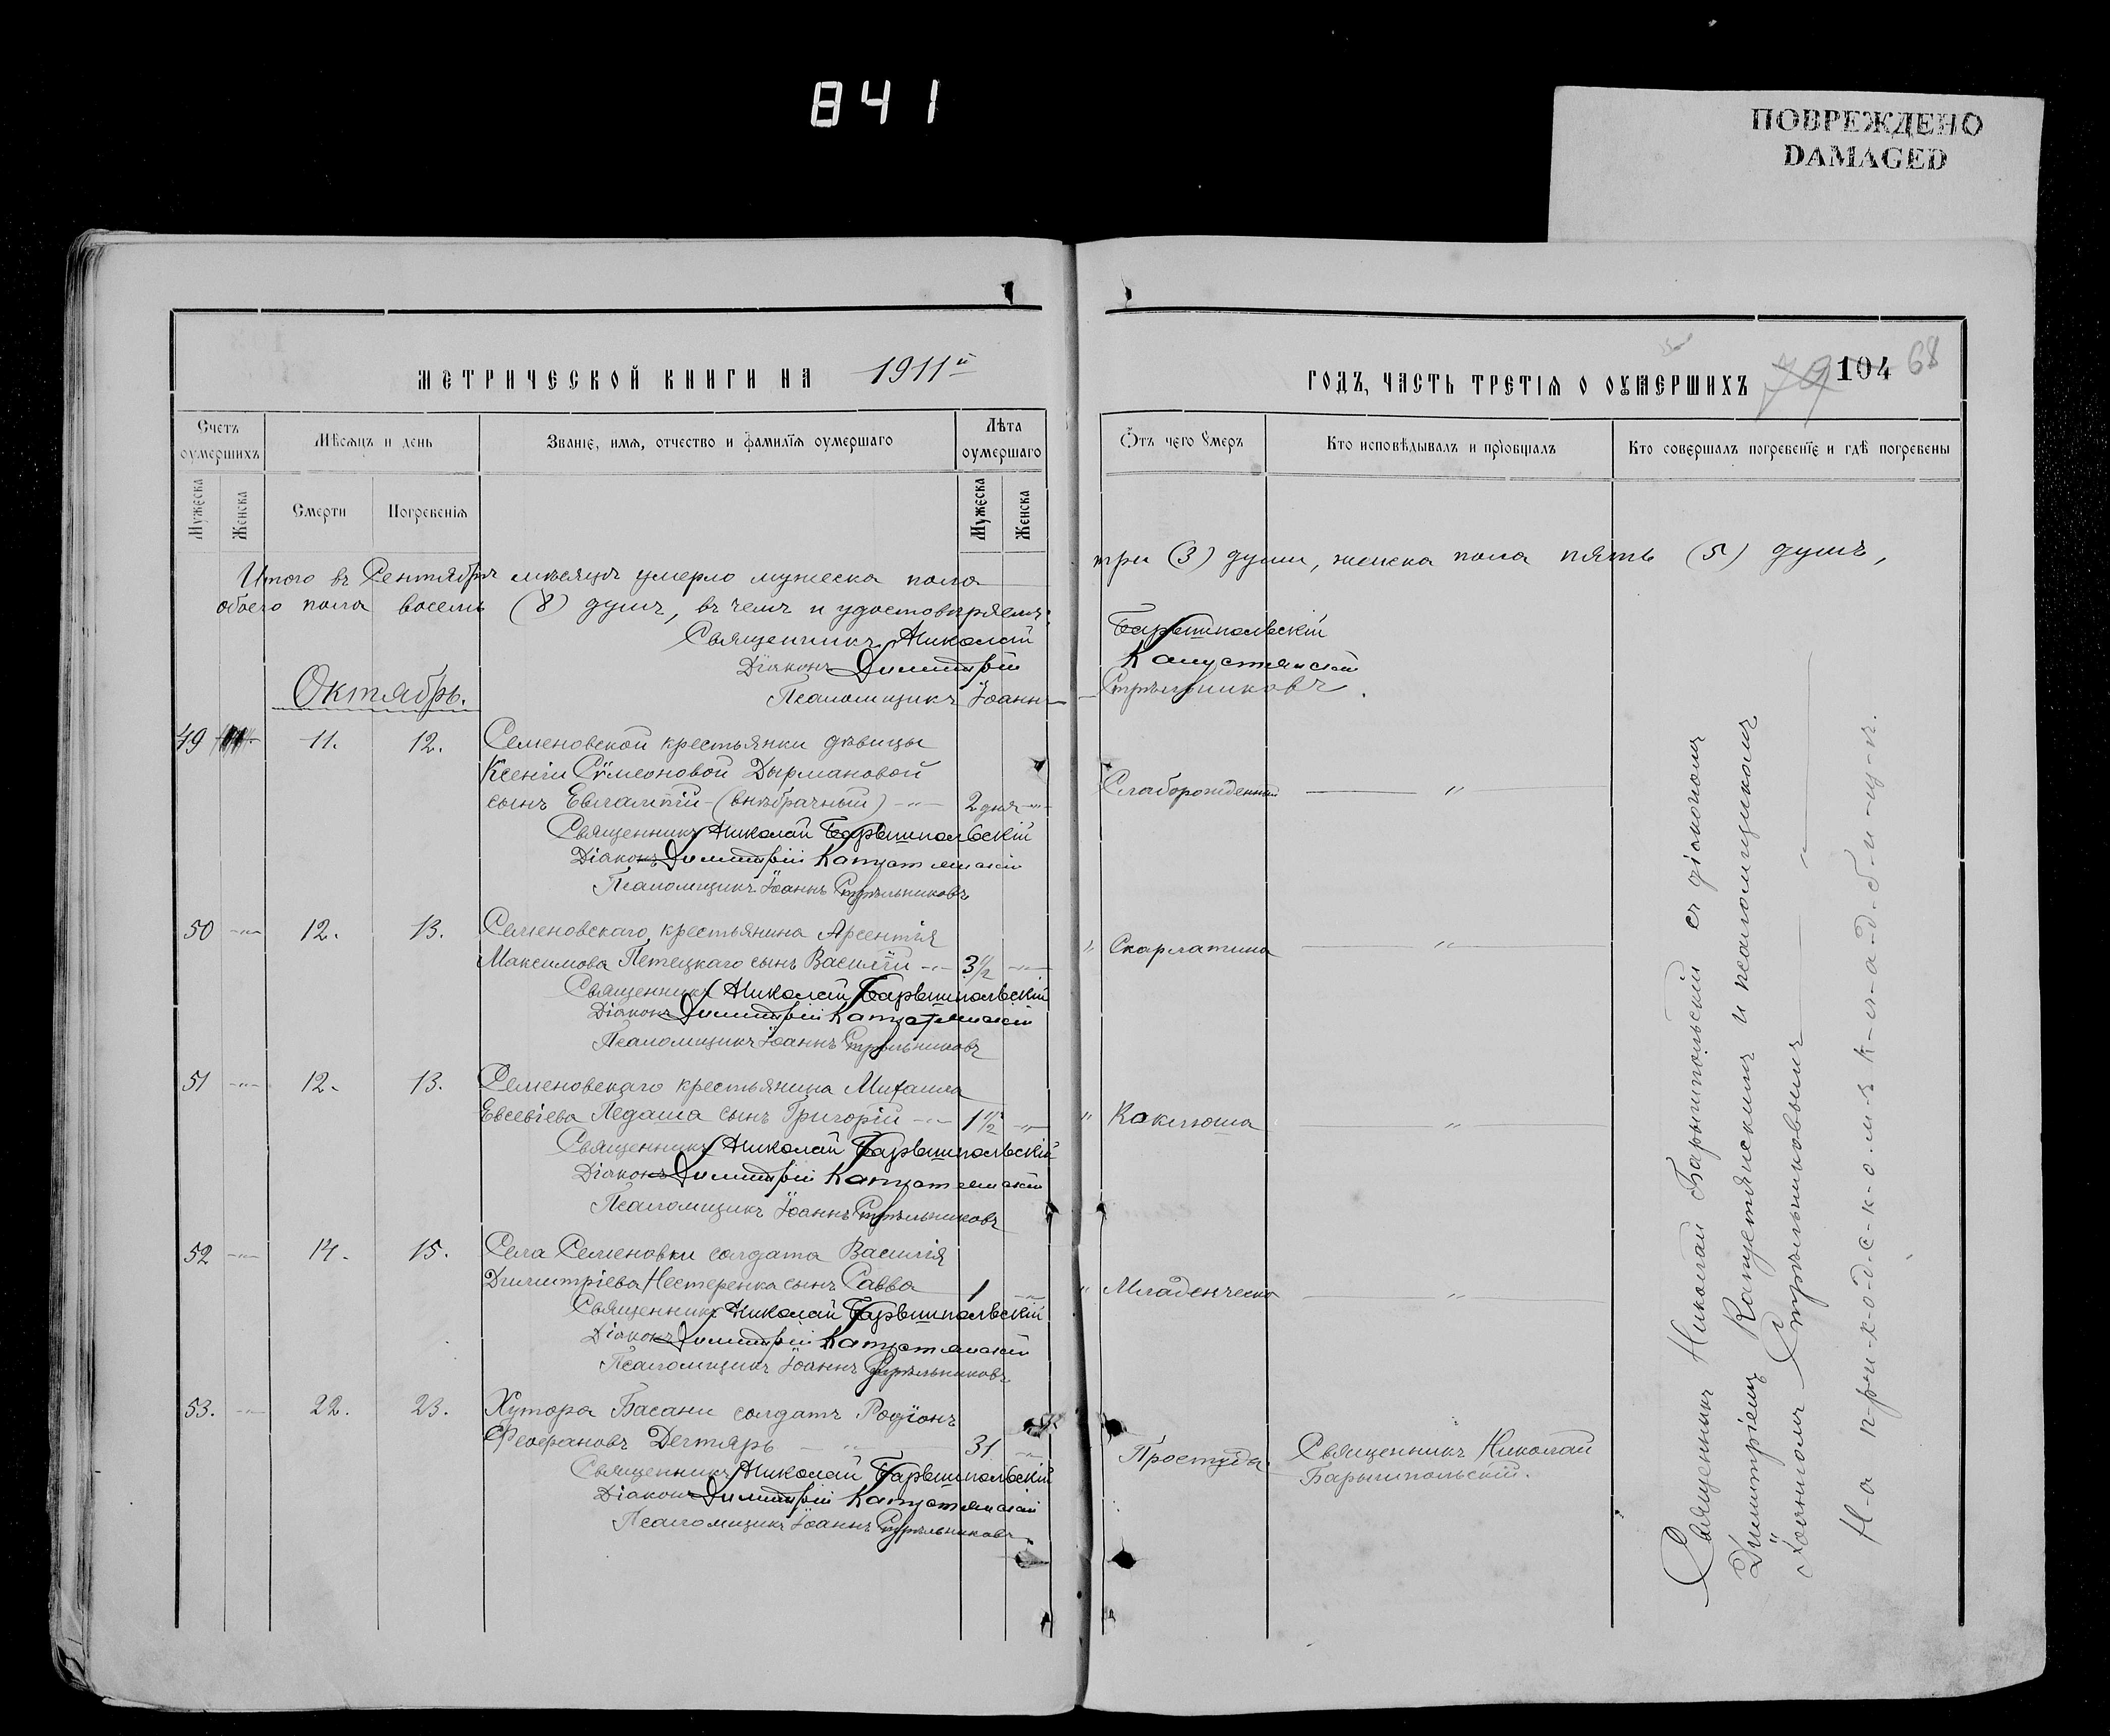 841
ПОВРЕЖДЕНО
DAMAGED
МЕТРИЧЕСКОЙ КНИГИ НА 1911й
ГОДЪ, ЧАСТЬ ТРЕТІЯ О ОУМЕРШИХЪ
79 104 68
Счетъ оумершихъ
Мѣсяцъ и день
Званіе, имя, отчество и фамилія оумершаго
Лѣта оумершаго
Отъ чего умеръ
Кто исповѣдывалъ и пріобщалъ
Кто совершалъ погребеніе и гдѣ погребены
Мужеска
Женска
Смерти
Погребенія
Мужеска
Женска
Итого въ Сентябрѣ мѣсяцѣ умерло мужеска пола три (3) души, женска пола пять (5) душъ,
обоего пола восемь (8) душъ, въ чемъ и удостовѣряемъ:
Священникъ Николай Барышпольскій
Діаконъ Димитрій Капустянскій
Псаломщикъ Іоаннъ Стрѣльниковъ.
Октябрь.
49 11. 12. Семеновской крестьянки дѣвицы
Ксеніи Сѵмеоновой Дырмановой
сынъ Евлампій - (внѣбрачный) -"- 2 дня -"- Слаборожденный "
Священникъ Николай Барышпольскій
Діаконъ Димитрій Капустянскій
Псаломщикъ Іоаннъ Стрѣльниковъ
50 -"- 12. 13. Семеновскаго крестьянина Арсентія
Максимова Петецкаго сынъ Василій -"- 3 1/2 -"- " Скарлатина "
Священникъ Николай Барышпольскій
Діаконъ Димитрій Капустянскій
Псаломщикъ Іоаннъ Стрѣльниковъ
51 -"- 12. 13. Семеновскаго крестьянина Михаила
Евсевіева Педаша сынъ Григорій -"- 1 1/2 -"- " Коклюша "
Священникъ Николай Барышпольскій
Діаконъ Димитрій Капустянскій
Псаломщикъ Іоаннъ Стрѣльниковъ
52 -"- 14. 15. Села Семеновки солдата Василія
Димитріева Нестеренка сынъ Савва 1 -"- " Младенческ "
Священникъ Николай Барышпольскій
Діаконъ Димитрій Капустянскій
Псаломщикъ Іоаннъ Стрѣльниковъ
53. -"- 22. 23. Хутора Басани солдатъ Родіонъ
Феофановъ Дегтярь -"- 31 -"- Простуда. Священникъ Николай
Барышпольскій.
Священникъ Николай Барышпольскій
Діаконъ Димитрій Капустянскій
Псаломщикъ Іоаннъ Стрѣльниковъ
Священникъ Николай Барышпольскій съ діакономъ
Димитріемъ Капустянскимъ и псаломщикомъ
Іоанномъ Стрѣльниковымъ
Н-а п-ри-х-о-д-с-к-о-м-ъ к-л-а-д-б-и-щ-ѣ.